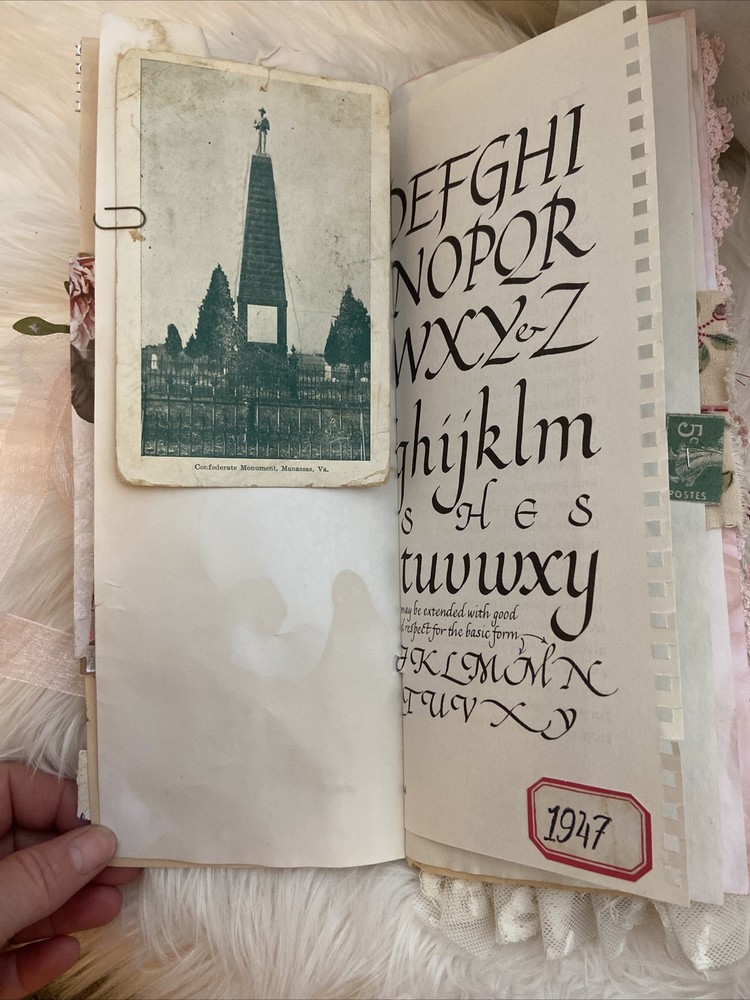 Confederate Monument, Manassas, Va.
DEFGHI
NOPQR
WXY&Z
ghijklm
S H E S
tuvwxy
may be extended with good
respect for the basic form
JKLMMN
TUVXY
1947
5c
POSTES